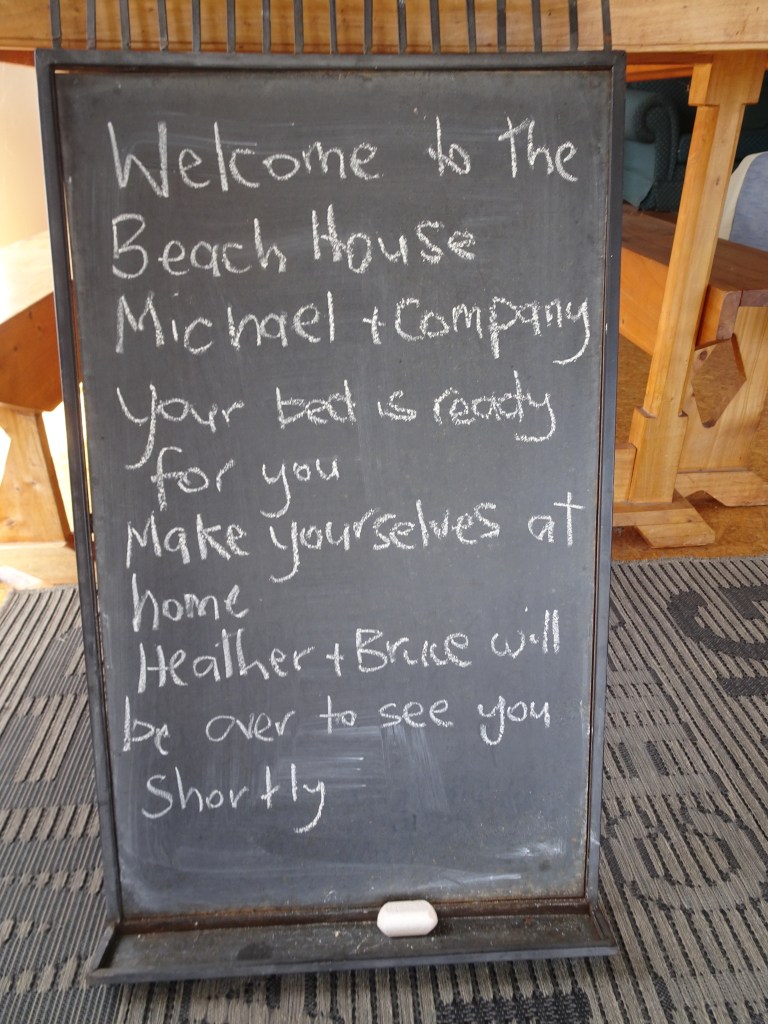 Welcome to The
Beach House
Michael + Company
Your bed is ready
for you
Make yourselves at
home
Heather + Bruce will
be over to see you
Shortly